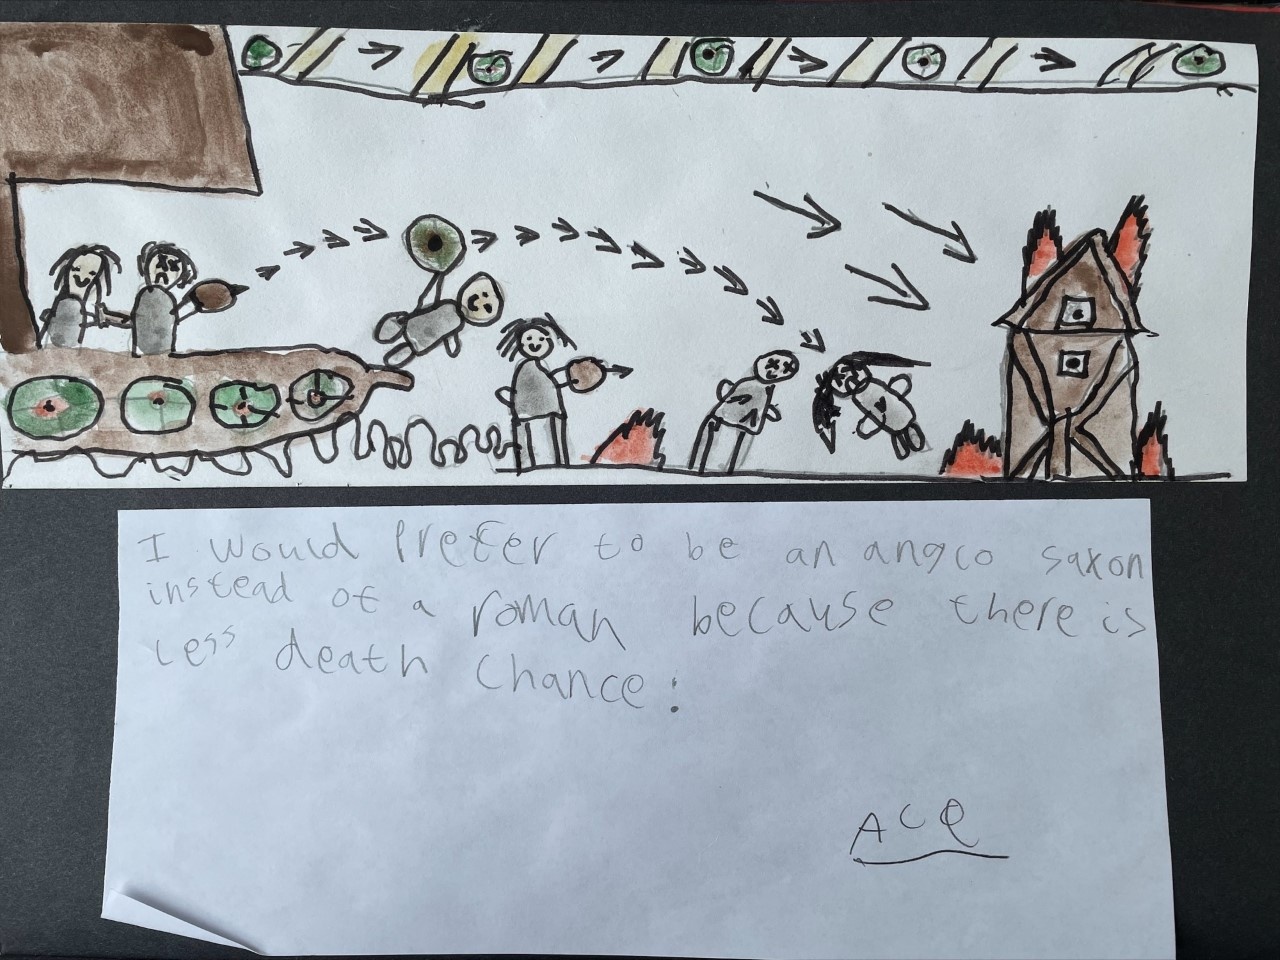 I would Prefer to be an anglo saxon
instead of a roman because there is
less death chance:
Ace